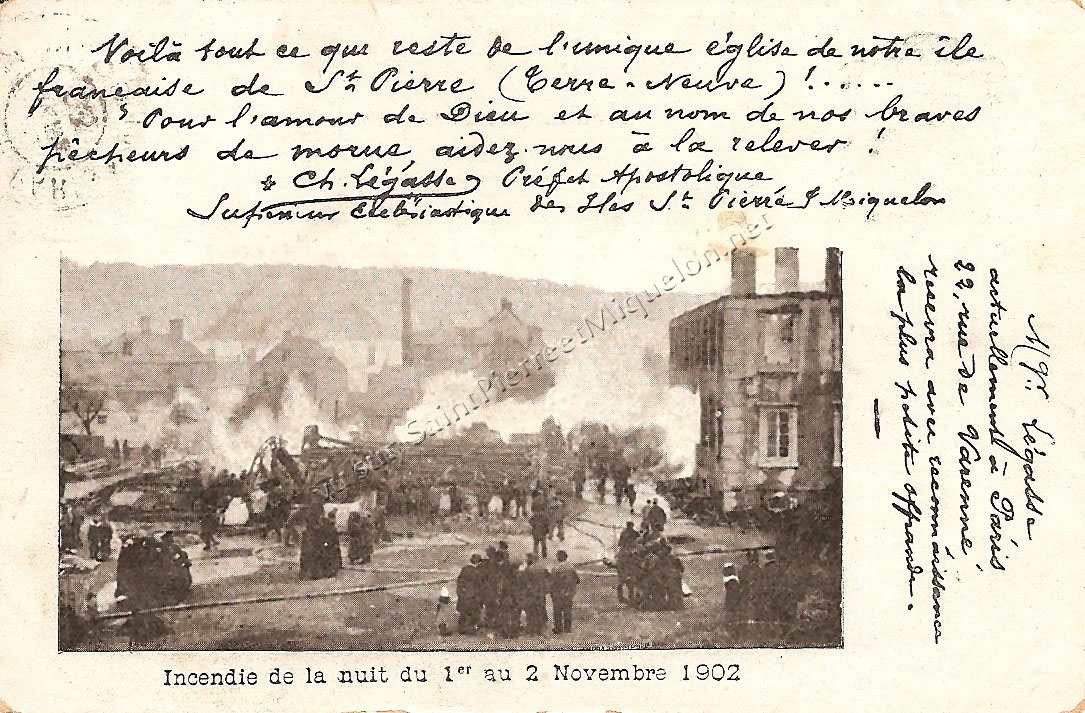 Voilà tout ce qui reste de l'unique église de notre île
française de St Pierre (Terre-Neuve)!......
Pour l'amour de Dieu et au nom de nos braves
pêcheurs de morue, aidez-nous à la relever!
+ Ch. Légasse, Préfet Apostolique
Supérieur Ecclésiastique des Iles St Pierre & Miquelon
Mgr. Légasse
actuellement à Paris
22, rue de Varenne,
recevra avec reconnaissance
la plus petite offrande.
vu sur SaintPierreetMiquelon.net
Incendie de la nuit du 1er au 2 Novembre 1902